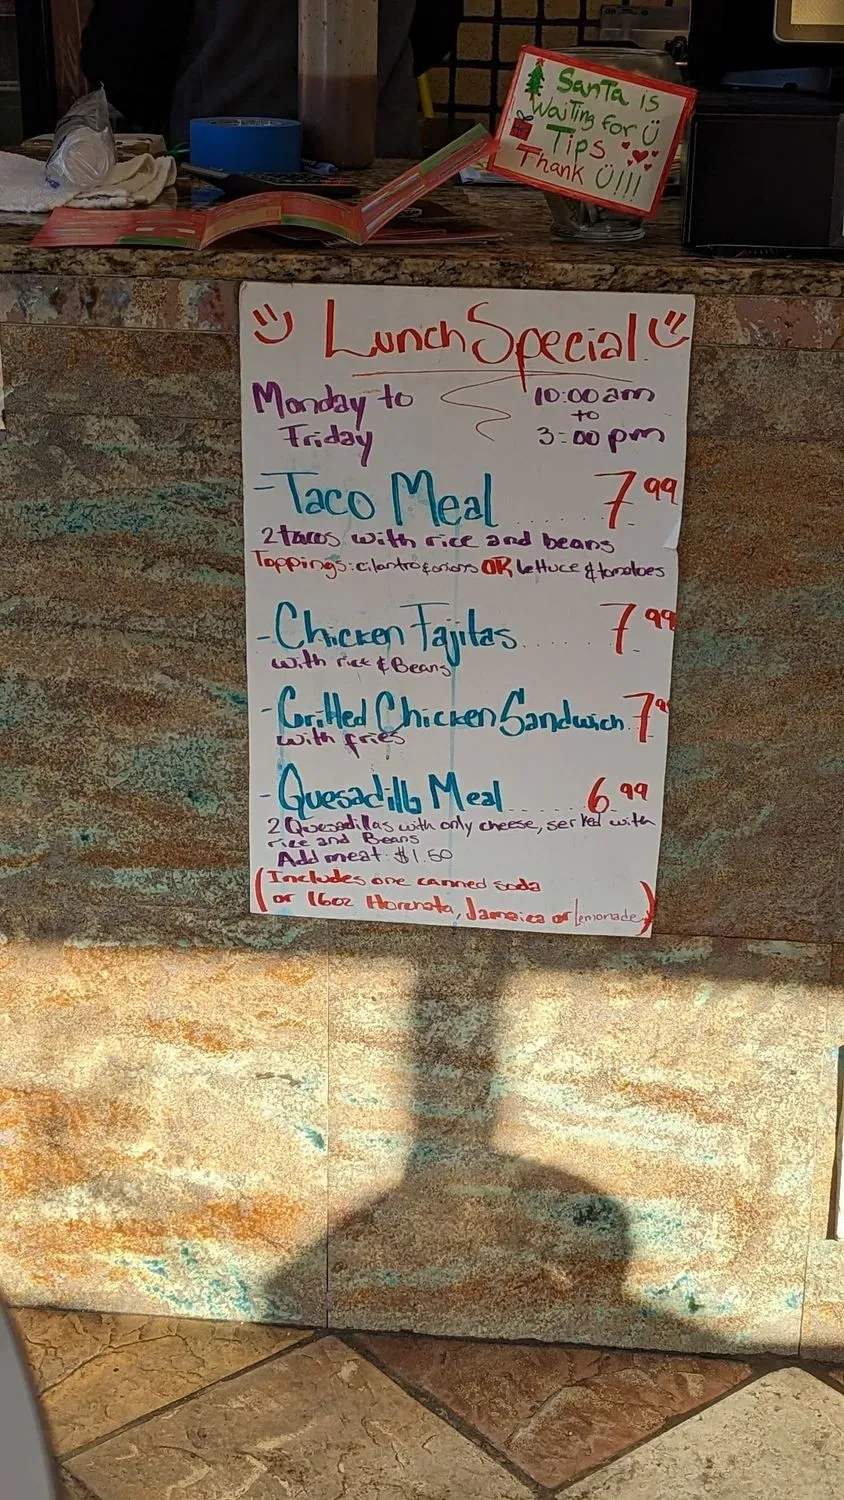 Santa is
Waiting for Ü
Tips
Thank Ü!!!
Lunch Special
Monday to
Friday
10:00 am
to
3:00 pm
- Taco Meal ..... 7.99
2 tacos with rice and beans
Toppings: cilantro & onions OR lettuce & tomatoes
- Chicken Fajitas ..... 7.99
with rice & Beans
- Grilled Chicken Sandwich. 7.99
with fries
- Quesadilla Meal ..... 6.99
2 Quesadillas with only cheese, served with
rice and Beans
Add meat: $1.50
(Includes one canned soda
or 16oz Horchata, Jamaica or Lemonade)